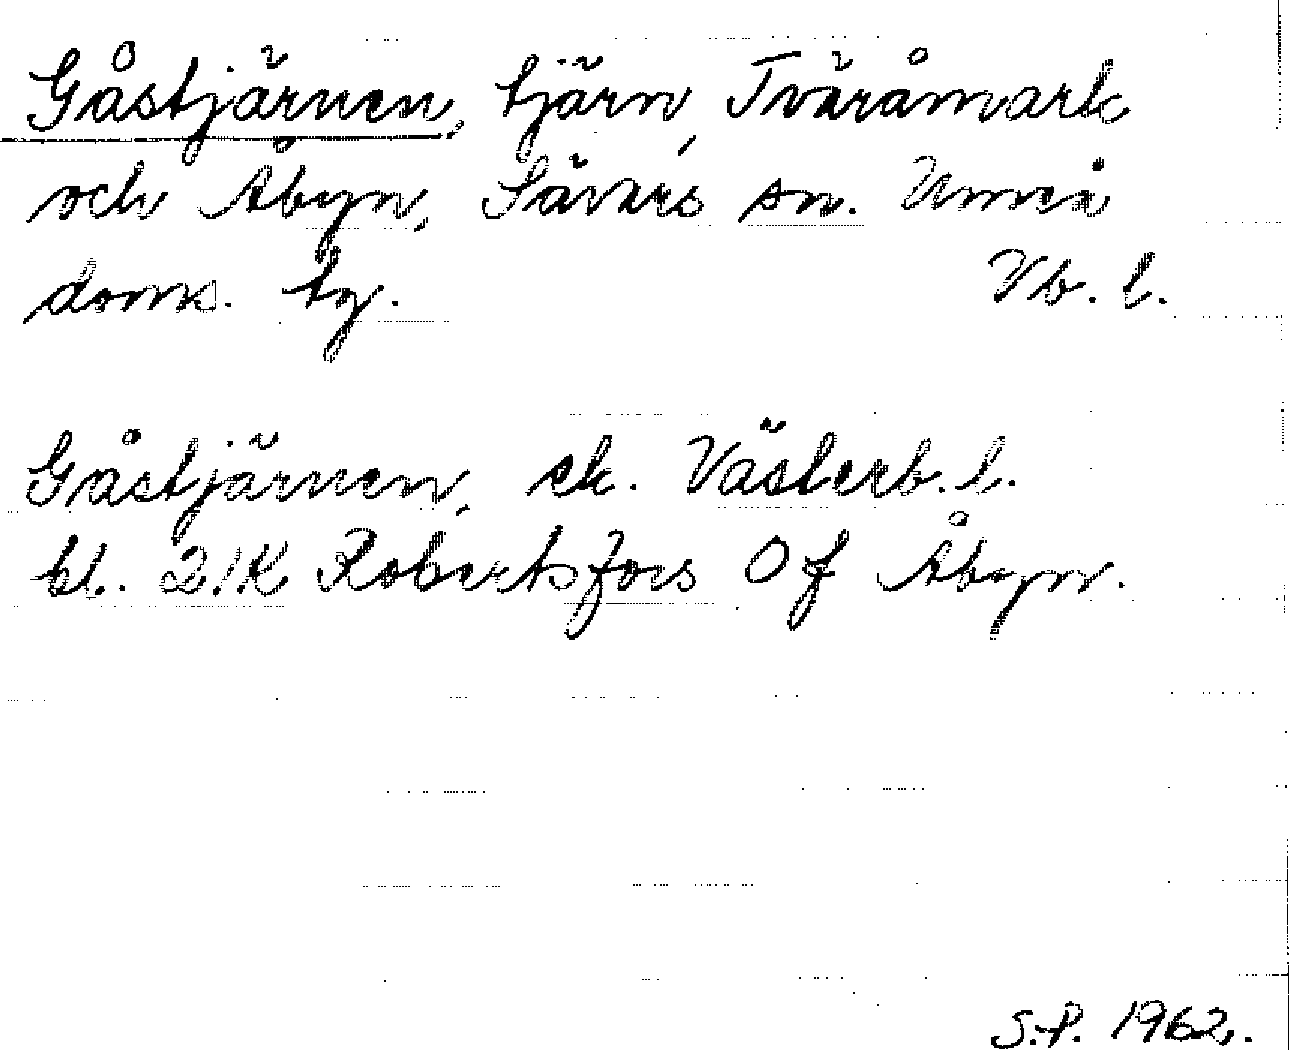 Gåstjärnen, tjärn, Tväråmark
och Åbyn, Sävars sn. Umeå
doms. tg. Vb. l.
Gåstjärnen, ek. Västerb. l.
bl. 21K Robertsfors Of Åbyn.
S.P. 1962.